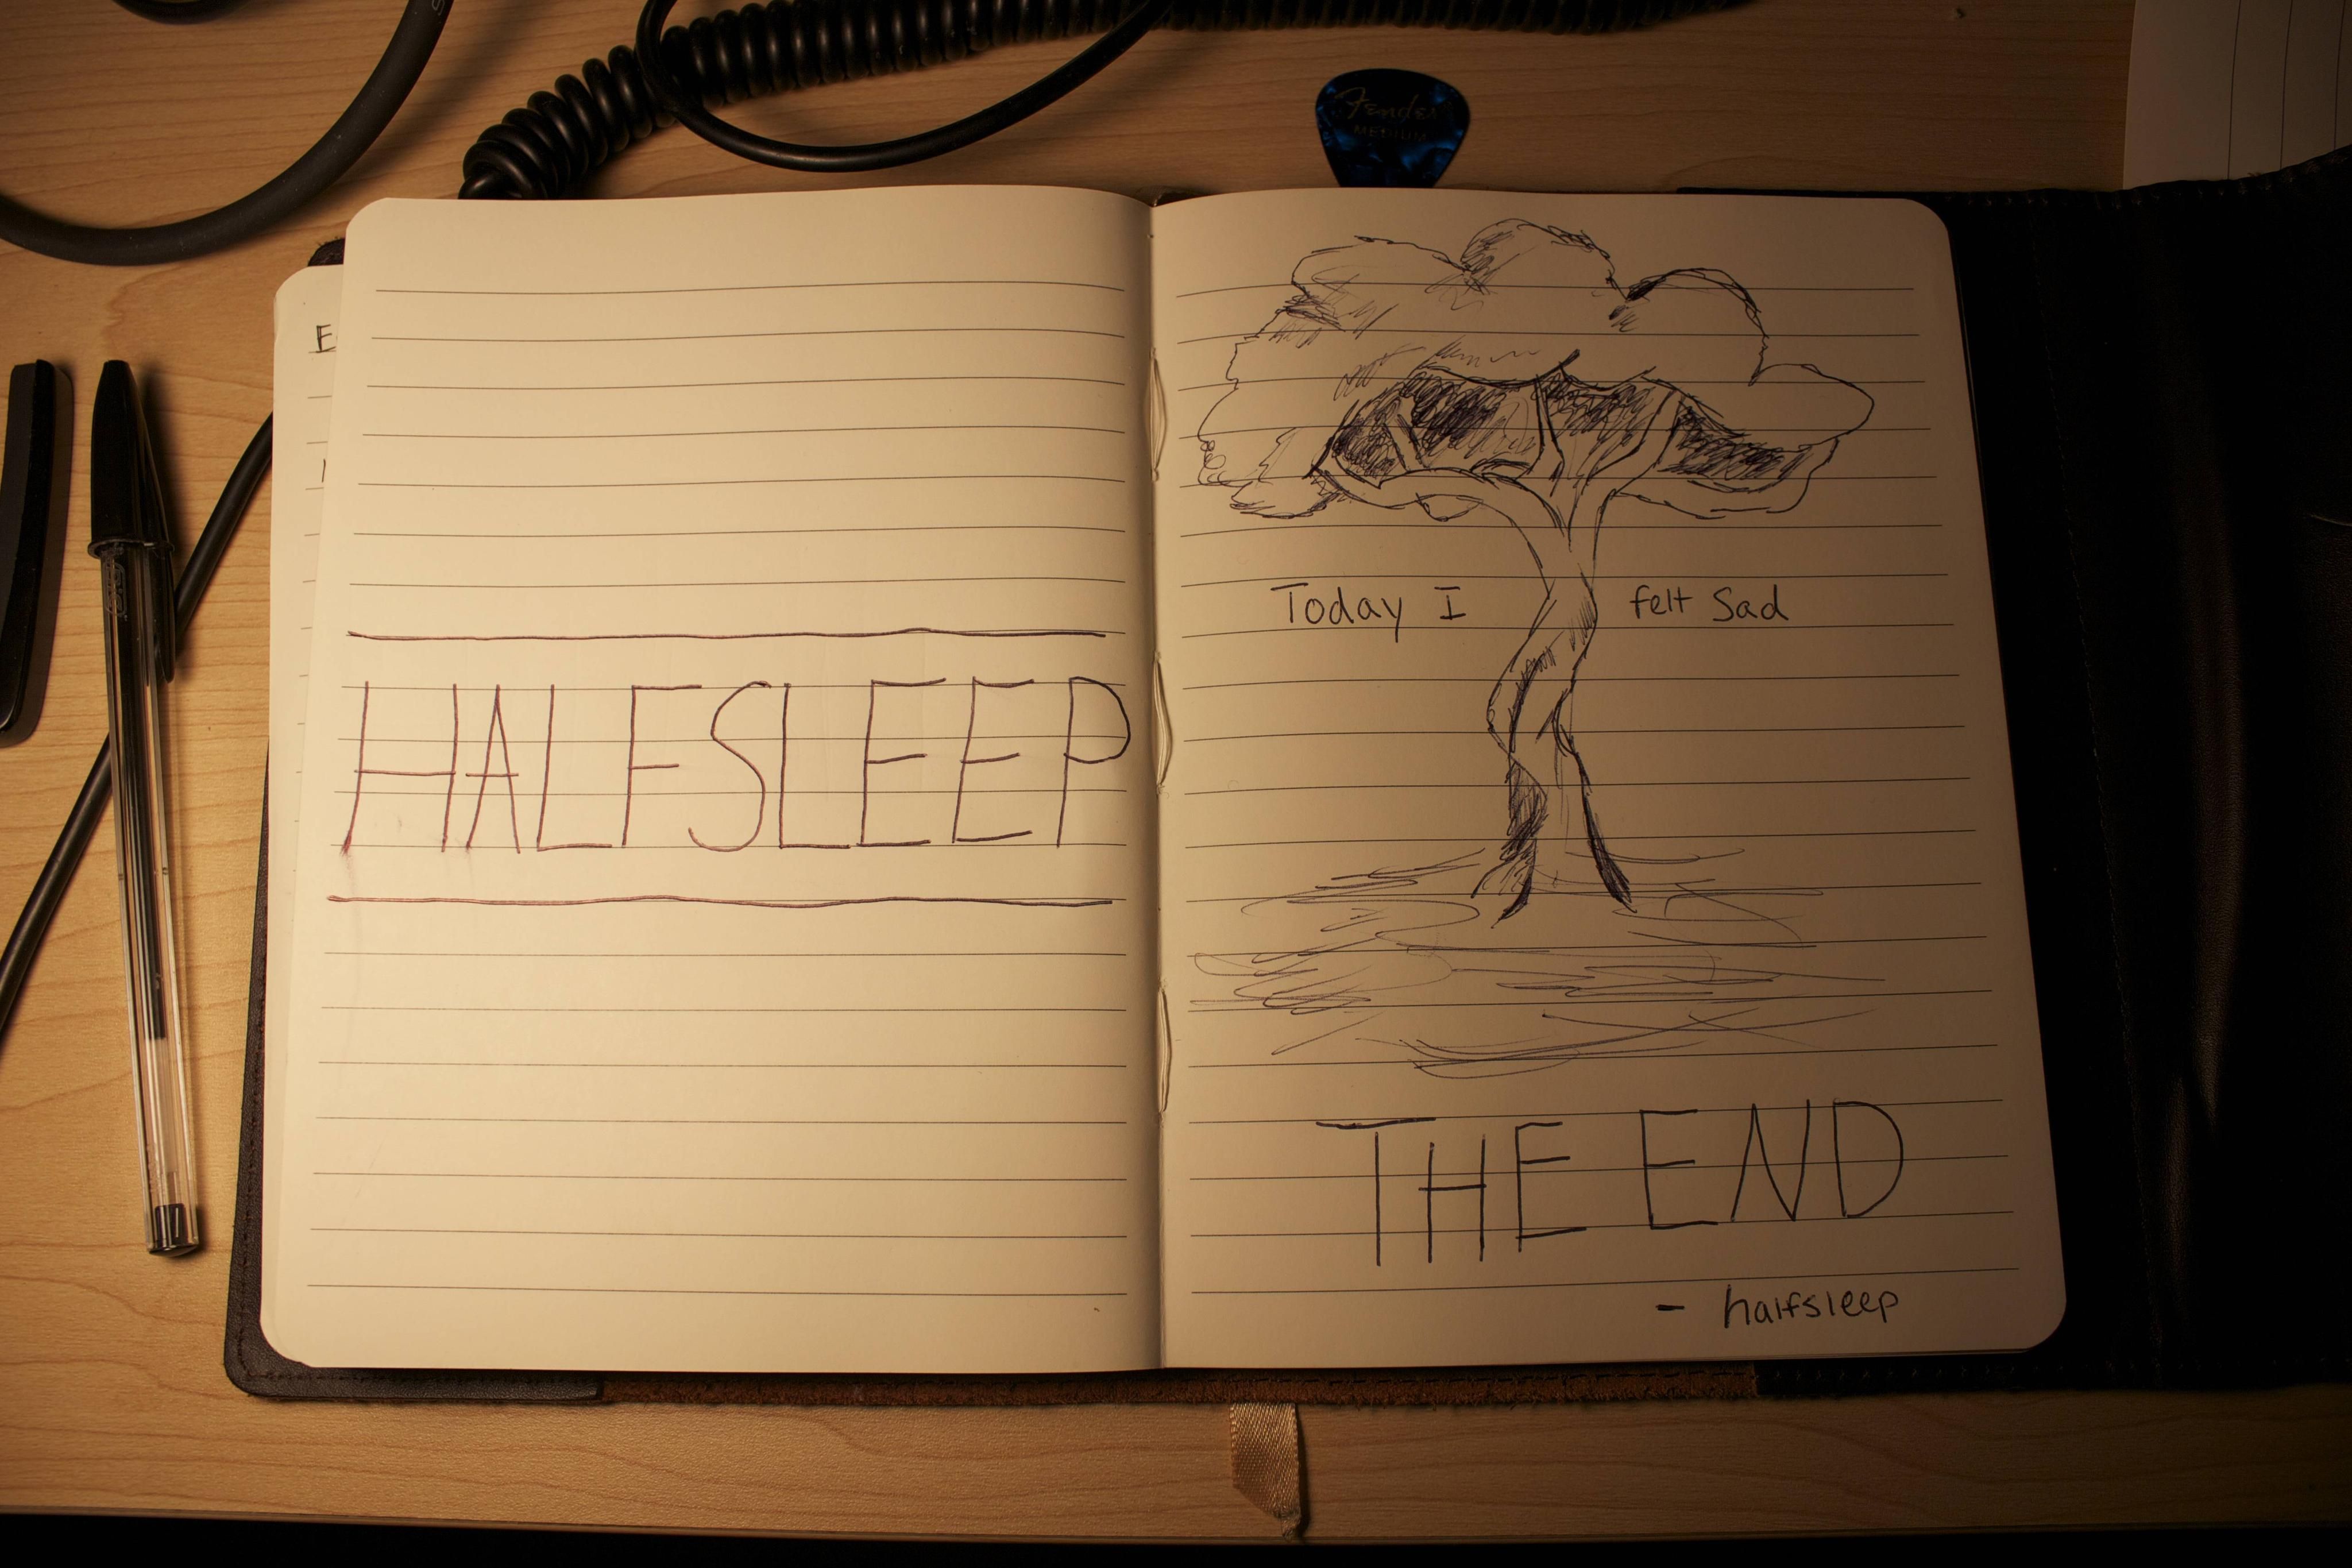 Fender
MEDIUM
E
HALFSLEEP
Today I felt Sad
THE END
- halfsleep